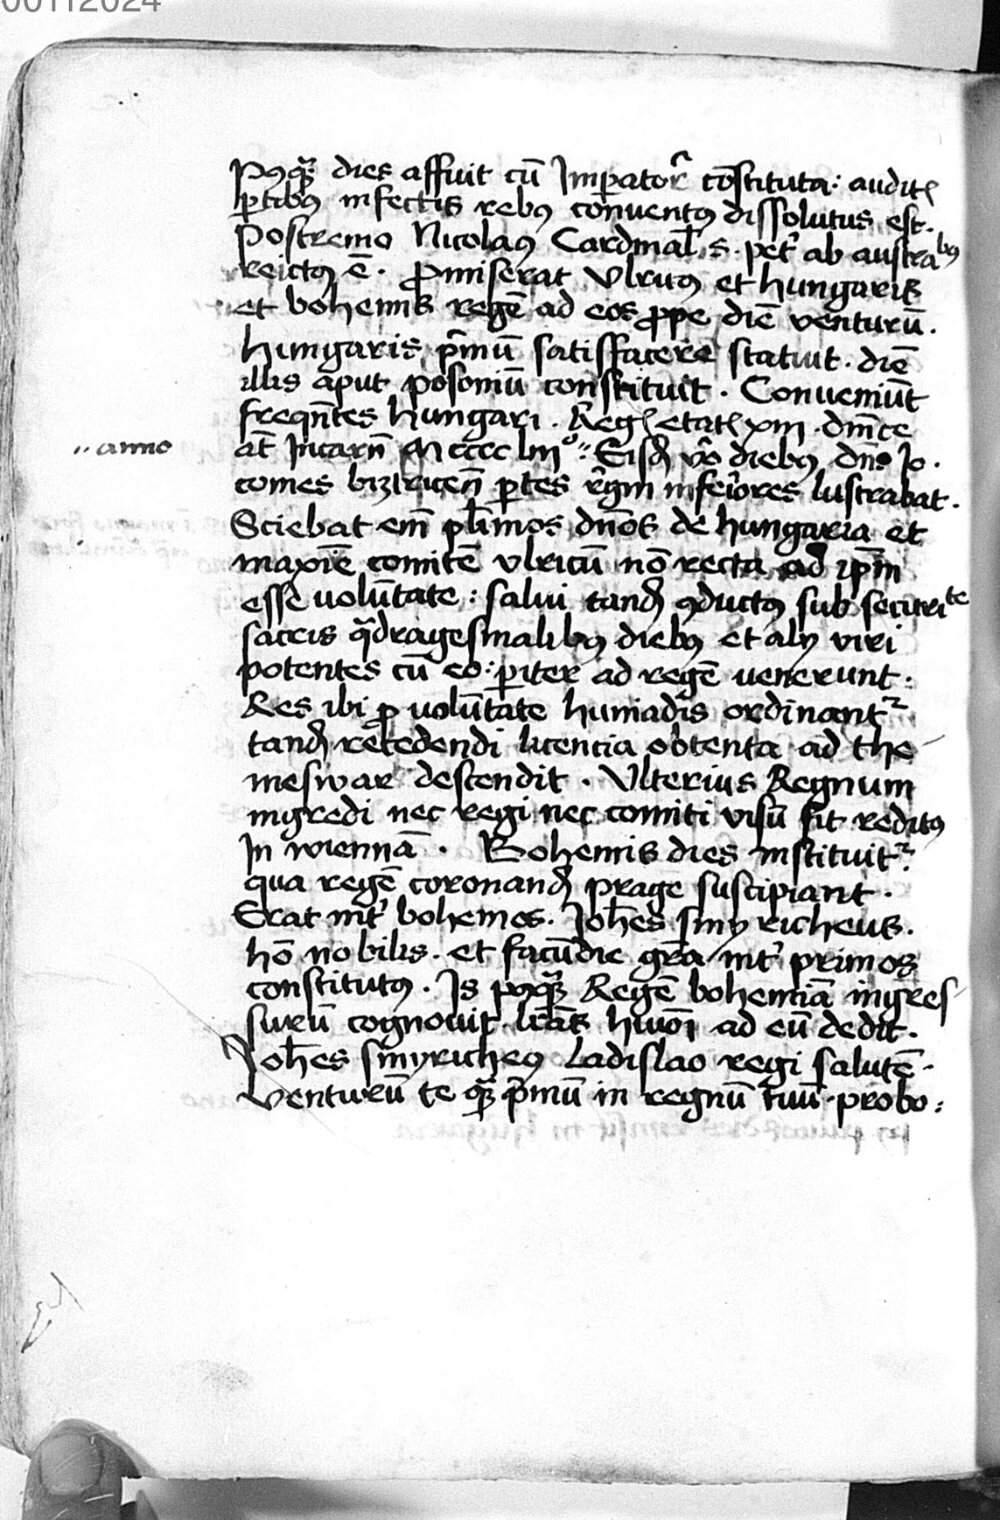 00112024
Poſtq̃ꝫ dies affuit cū Imperatorͥ cōſtituta: auditꝭ
ꝑtibꝰ infectis rebꝰ conventꝰ diſſolutus eſt.
Poſtremo Nicolaꝰ Cardinal̓ s. petͥ ab auſtrabꝰ
reictꝰ ē. ꝓmiſerat Vlricꝰ et hungaris
et bohemis regē ad eos ꝓpe diē venturū.
hungaris pͥmū ſatiſfacere ſtatuit. diē
illis aput poſoniū conſtituit. Conveniūt
freqn̄tes hungari. Regꝭ etatꝭ xiii. dn̄ice
at̄ Incarn̄ Mcccc liiiº ·· Eiſdꝫ v̊o diebꝰ dn̄s Io.
·· anno
comes biztricen̄ ꝑtes rͥgni inferͥores luſtrabat.
Sciebat em̄ plīmos dn̄os de hungaria et
maxīe comitē vlricū nō recta ad ip̄m
eſſe volūtate: ſalvi tandꝫ ꝯductꝰ ſub ſecuritͭᵉ
ſacris q̃drageſimalibꝰ diebꝰ et alij viri
potentes cū eo: ꝑiter ad regē venerunt:
Res ibi ꝓ volūtate huniadis ordinantᷣ
tandꝫ recedendi licencia obtenta ad the-
meſwar deſcendit. Vlterius Regnum
ingredi nec regi nec comiti viſū fit reditꝰ
In wiennā. Bohemis dies inſtituitᷣ.
qua regē coronandꝫ prage ſuſcipiant.
Erat intͥ bohemos. Ioh̄es ſmyricheus.
hō nobilis. et facūdie gr̄a intͥ primos
conſtitutꝰ. Is poſtq̃ꝫ Regē bohemiā ingreſ-
ſurū cognovit. lr̄as hm̄oi ad eū dedit.
Ioh̄es ſmyricheꝰ Ladiſlao regi ſalutē.
Venturū te q̃ꝫ pͥmū in regnū tuū. probo: